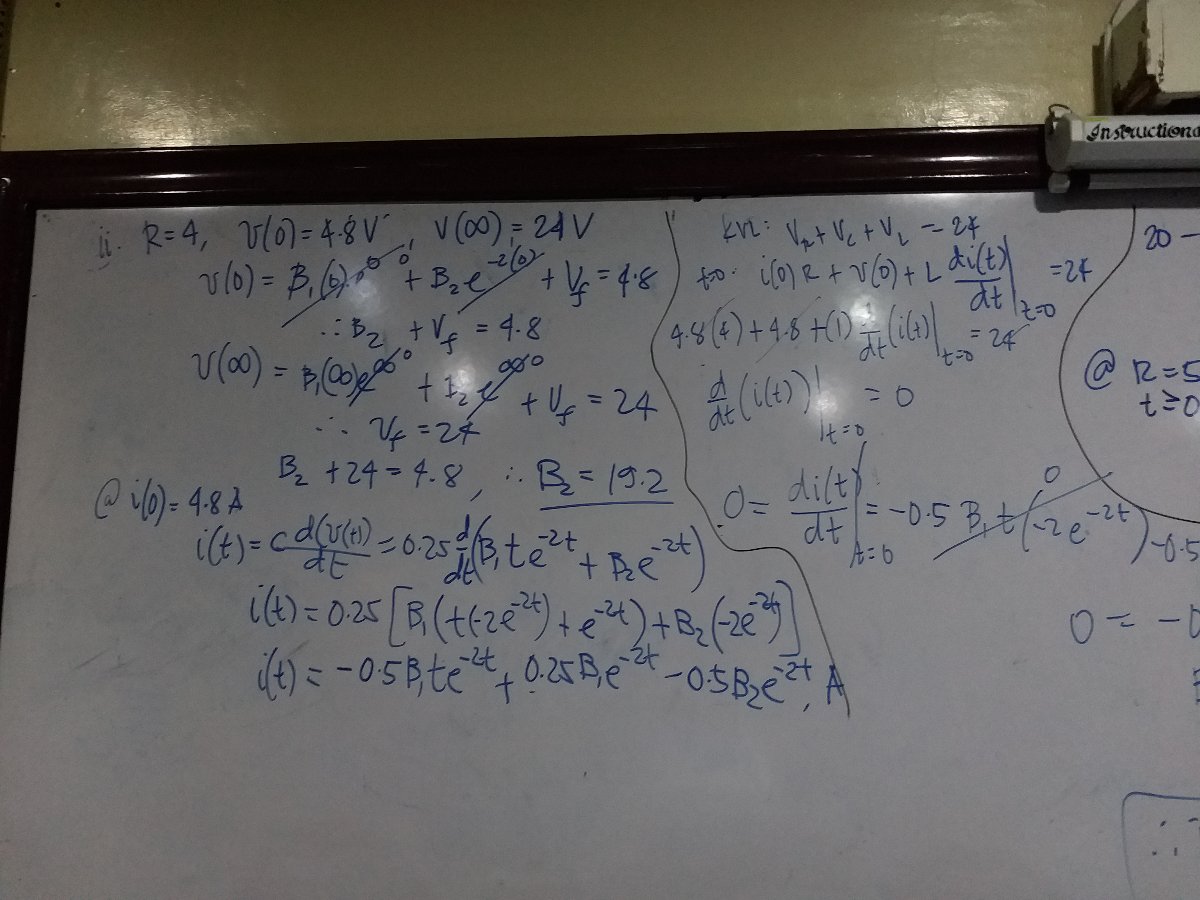 ii. R=4, v(0)=4.8V, V(∞)=24V
v(0) = B₁(0)e⁰ + B₂e^-2(0) + V_f = 4.8
∴ B₂ + V_f = 4.8
V(∞) = B₁(∞)e^∞ + B₂e^∞ + V_f = 24
∴ V_f = 24
B₂ + 24 = 4.8, ∴ B₂ = 19.2
@ i(0) = 4.8A
i(t) = C d(v(t))/dt = 0.25 d/dt(B₁te^-2t + B₂e^-2t)
i(t) = 0.25[B₁(t(-2e^-2t) + e^-2t) + B₂(-2e^-2t)]
i(t) = -0.5B₁te^-2t + 0.25B₁e^-2t - 0.5B₂e^-2t, A
KVL: V_R + V_C + V_L = 24
t=0: i(0)R + v(0) + L di(t)/dt|t=0 = 24
4.8(4) + 4.8 + (1) d/dt(i(t))|t=0 = 24
d/dt(i(t))|t=0 = 0
0 = di(t)/dt|t=0 = -0.5 B₁t(-2e^-2t) -0.5
0 = -0
20 -
@ R = 5
t ≥ 0
Instructiona